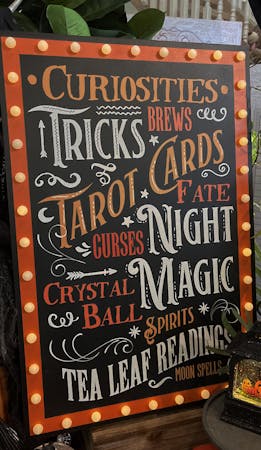 CURIOSITIES
TRICKS BREWS
TAROT CARDS
FATE
CURSES NIGHT
MAGIC
CRYSTAL
BALL
SPIRITS
TEA LEAF READINGS
MOON SPELLS